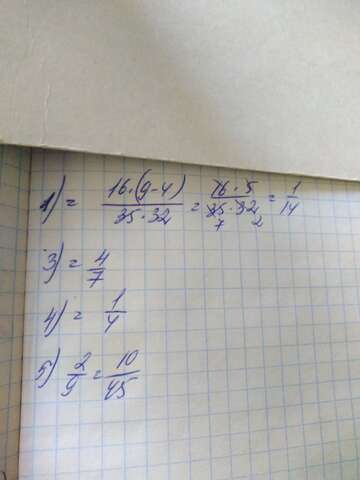 1) = 16·(9-4)/35·32 = 16·5/35·32 = 1/14
7 2
3) = 4/7
4) = 1/4
5) 2/9 = 10/45